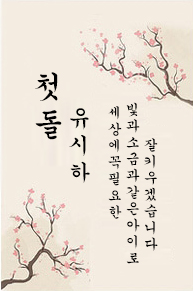 첫돌
유시하
세상에꼭필요한
빛과소금과같은아이로
잘키우겠습니다